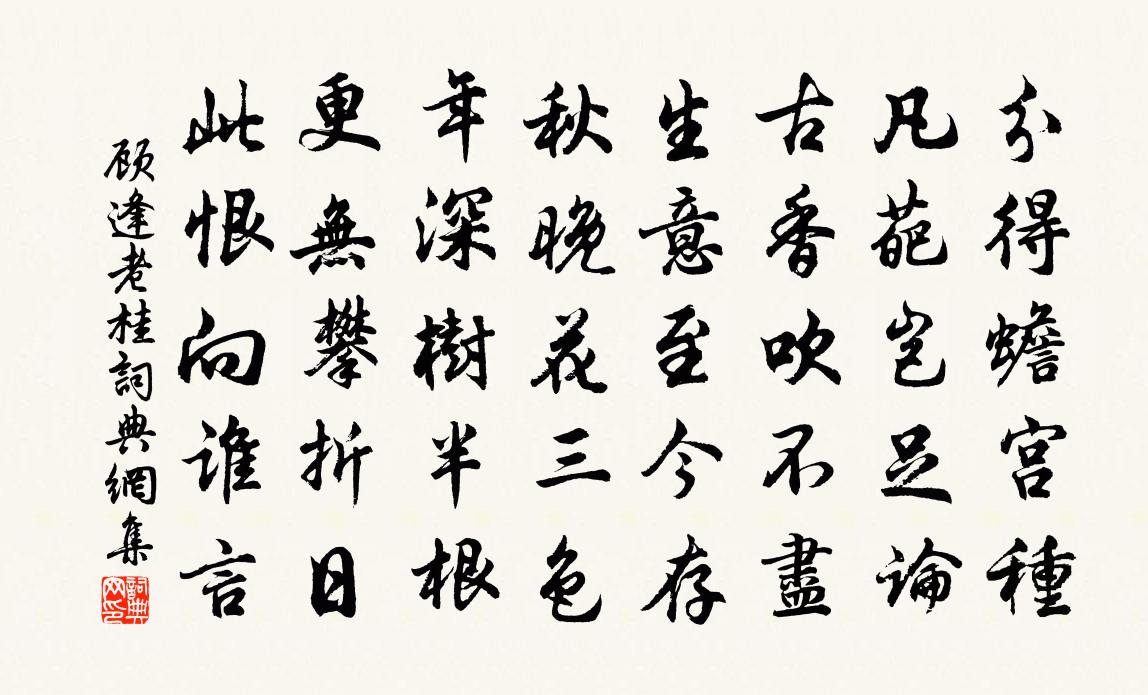 分得蟾宮種
凡葩豈足論
古香吹不盡
生意至今存
秋晚花三色
年深樹半根
更無攀折日
此恨向誰言
顧逢老桂詞典網集
詞典網印